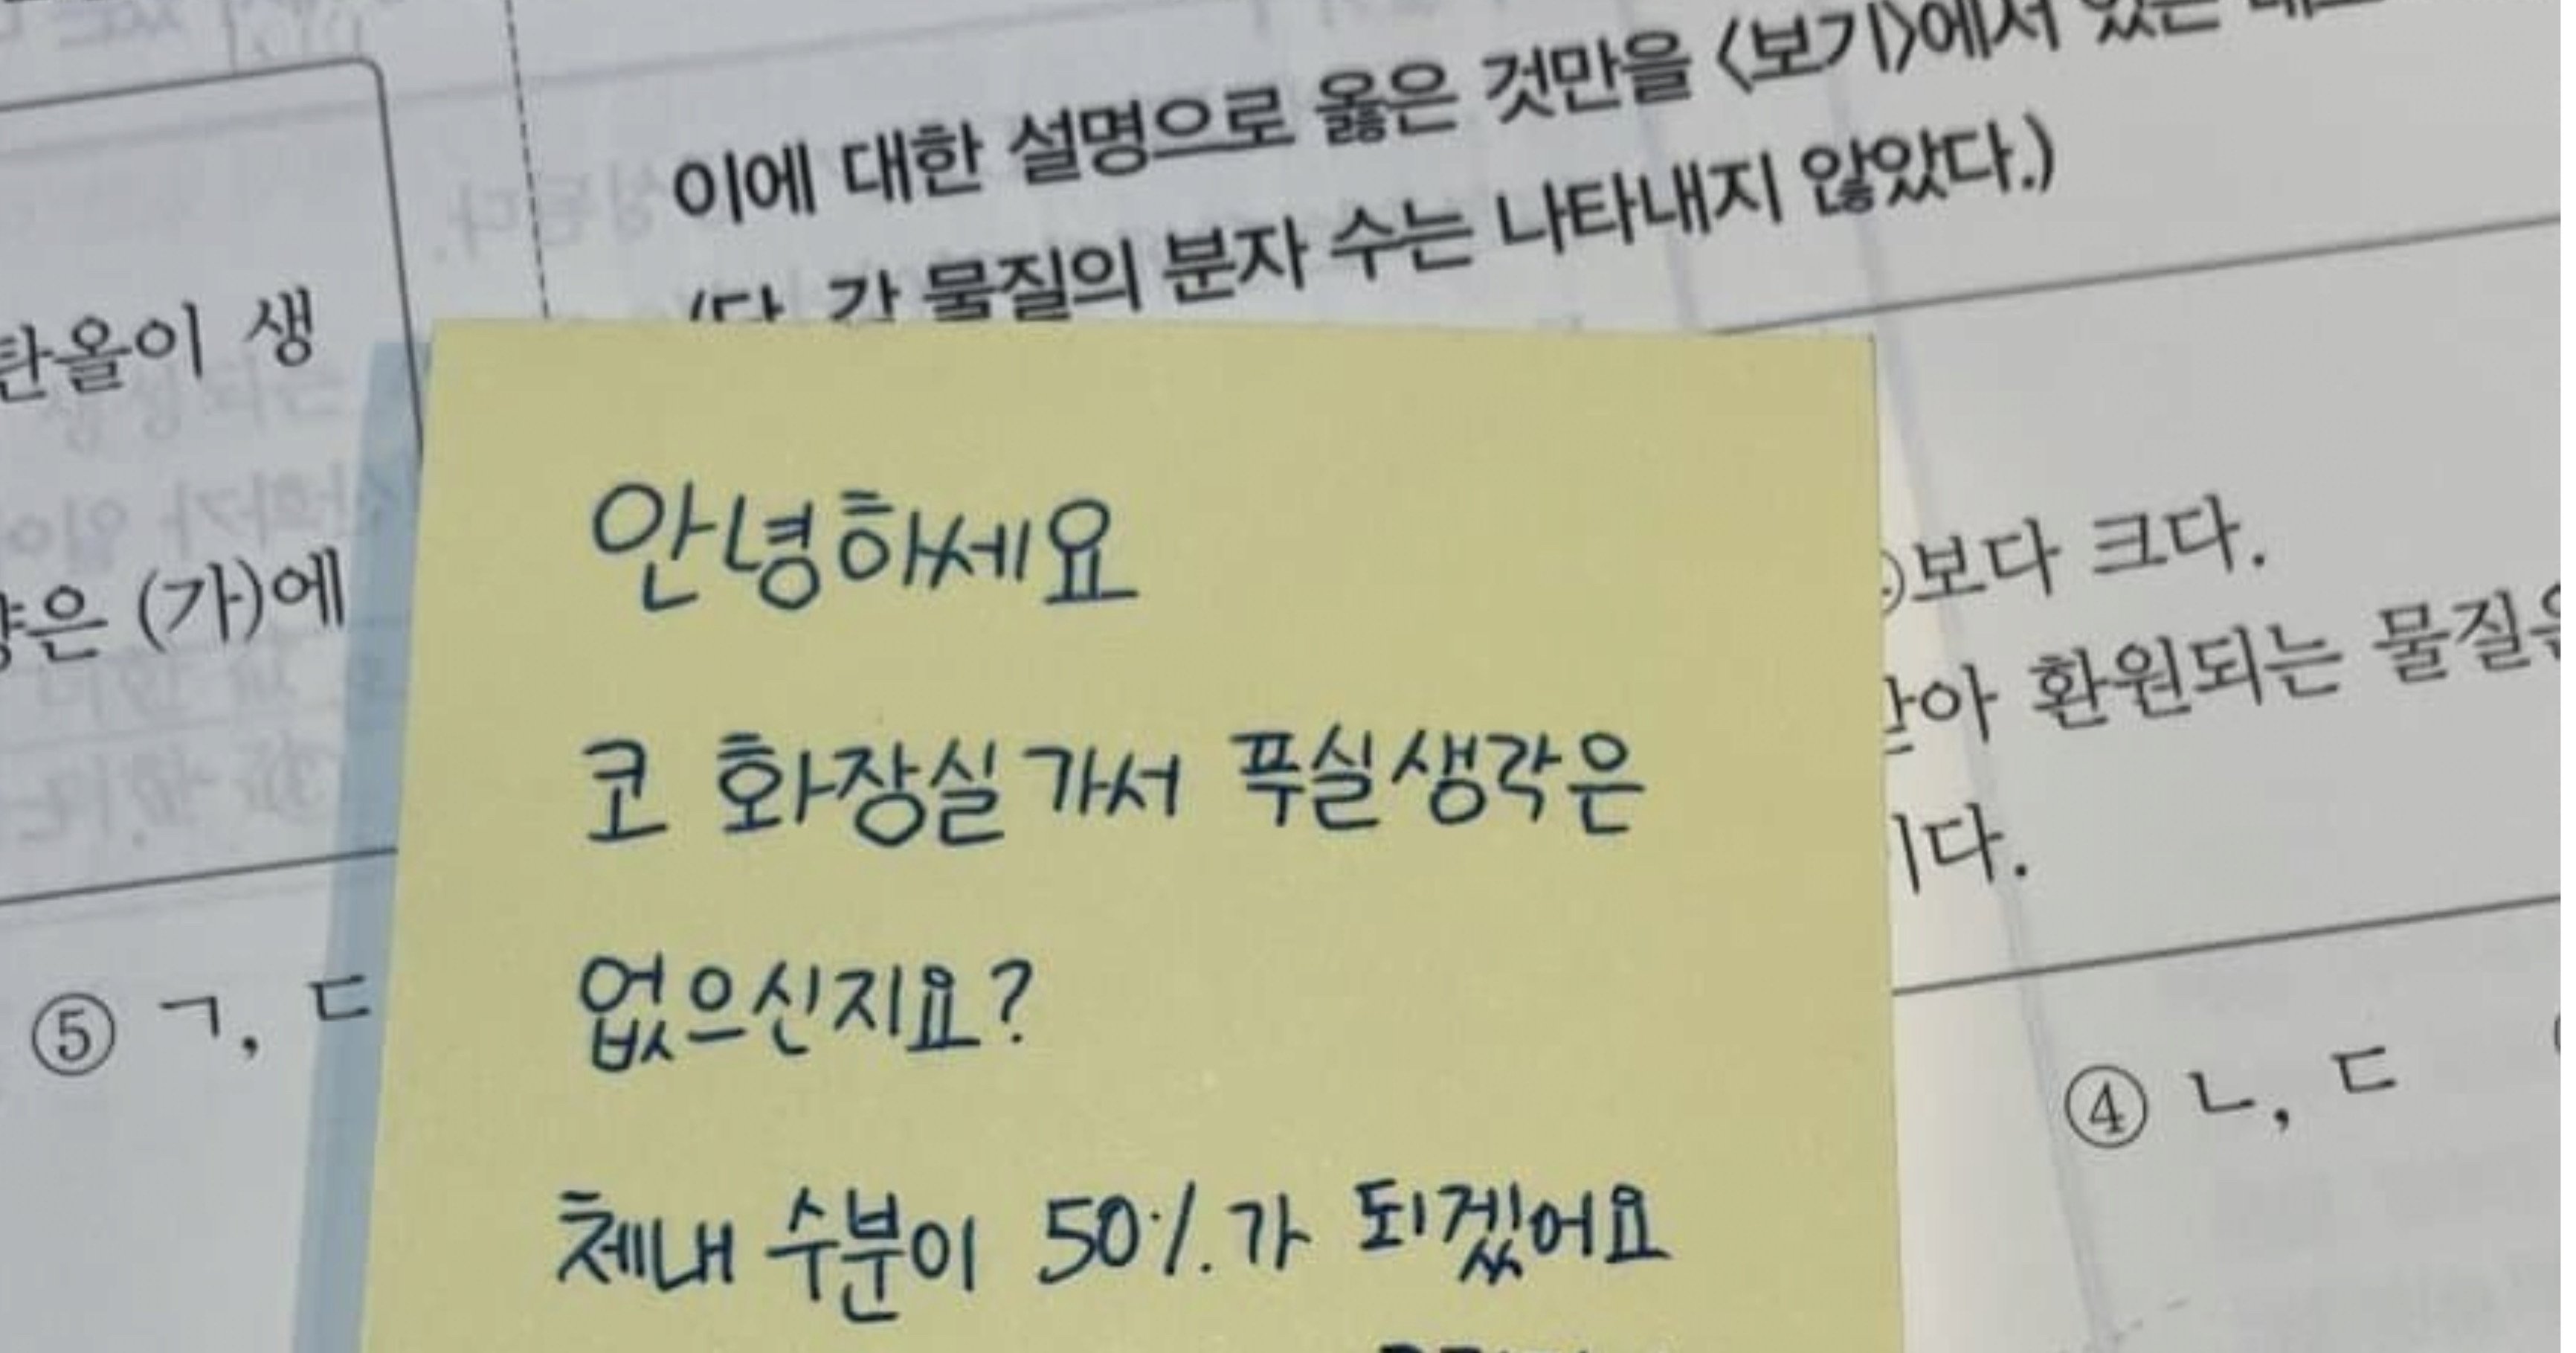 이에 대한 설명으로 옳은 것만을 <보기>에서 있는
(단, 각 물질의 분자 수는 나타내지 않았다.)
탄올이 생
은 (가)에
⑤ ㄱ, ㄷ
안녕하세요
코 화장실 가서 푸실 생각은
없으신지요?
체내 수분이 50%가 되겠어요
보다 크다.
아 환원되는 물질은
이다.
④ ㄴ, ㄷ